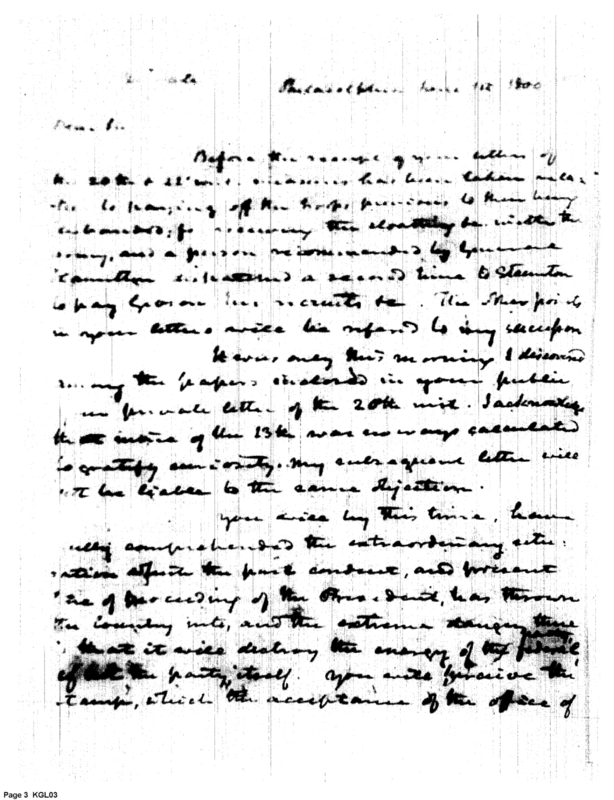 Philadelphia June 1st 1800
Dear Sir
Before the receipt of your letters of
the 20th & 22d measures has been taken rela-
tive to paying off the troops previous to their being
disbanded; for receiving the cloathing &c. within the
and a person recommended by General
Hamilton dispatched a second time to Staunton
to pay his recruits &c. The other points
in your letters will be refered to my successor
It was only this morning I discovered
among the papers inclosed in your public
private letter of the 20th inst. I acknowledge
the of the 13th was no ways calculated
to gratify curiosity. My subsequent letter will
not be liable to the same objection.
You will by this time, have
fully comprehended the extraordinary situ-
ation which the past conduct, and present
of proceeding of the President, has thrown
the Country into, and the extreme danger there
is that it will destroy the energy of the federal party,
if not the party itself. You will perceive the
stamp, which the acceptance of the office of
Page 3 KGL03